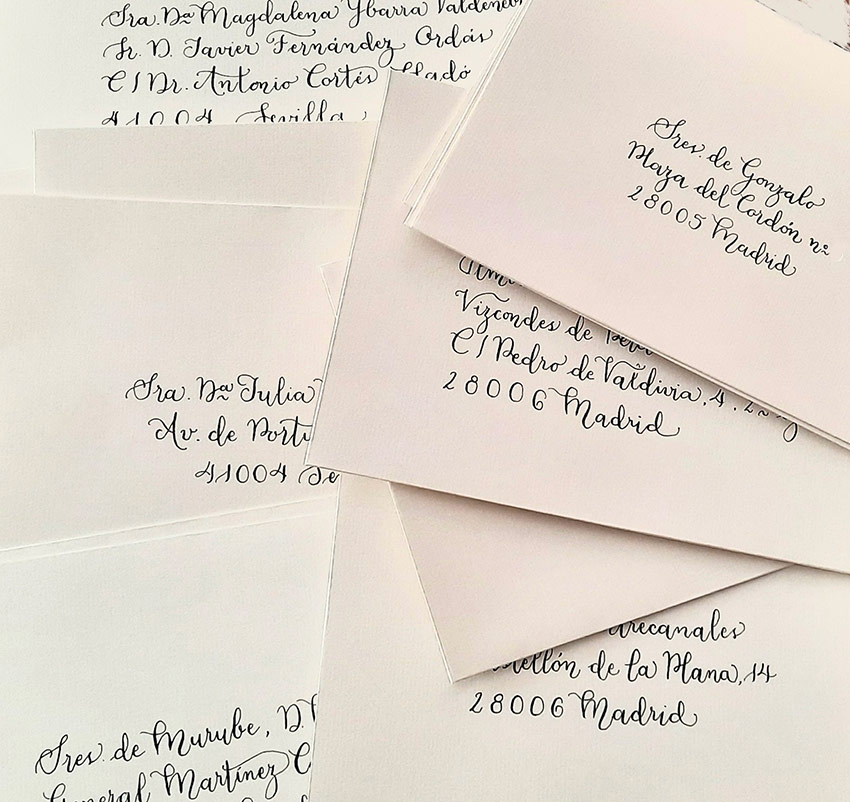 Sra. Dª Magdalena Ybarra
Sr. D. Javier Fernández Ordás
C/ Dr. Antonio Cortés Lladó
41004 Sevilla
Sres. de Gonzalo
Plaza del Cordón nº
28005 Madrid
Vizcondes de
C/ Pedro de Valdivia, 4. 2º
28006 Madrid
Sra. Dª Julia
Av. de
41004
de la Plana, 14
28006 Madrid
Sres. de Murube, D.
General Martínez